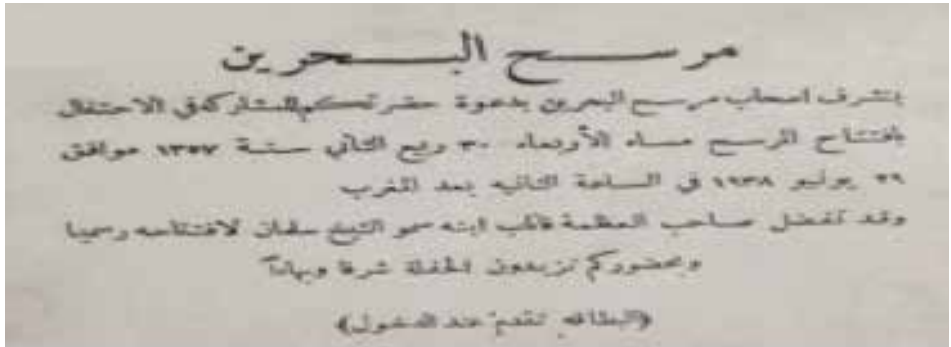 مرسح البحرين
يتشرف اصحاب مرسح البحرين بدعوة حضرتكم للمشاركة في الاحتفال
بافتتاح المرسح مساء الأربعاء ٣٠ ربيع الثاني سنة ١٣٥٧ موافق
٢٩ يونيو ١٩٣٨ في الساعة الثانيه بعد المغرب
وقد تفضل صاحب العظمة فأناب ابنه سمو الشيخ سلمان لافتتاحه رسميا
وبحضوركم تزيدون الحفلة شرفا وبهاءً
(البطاقه تقدم عند الدخول)